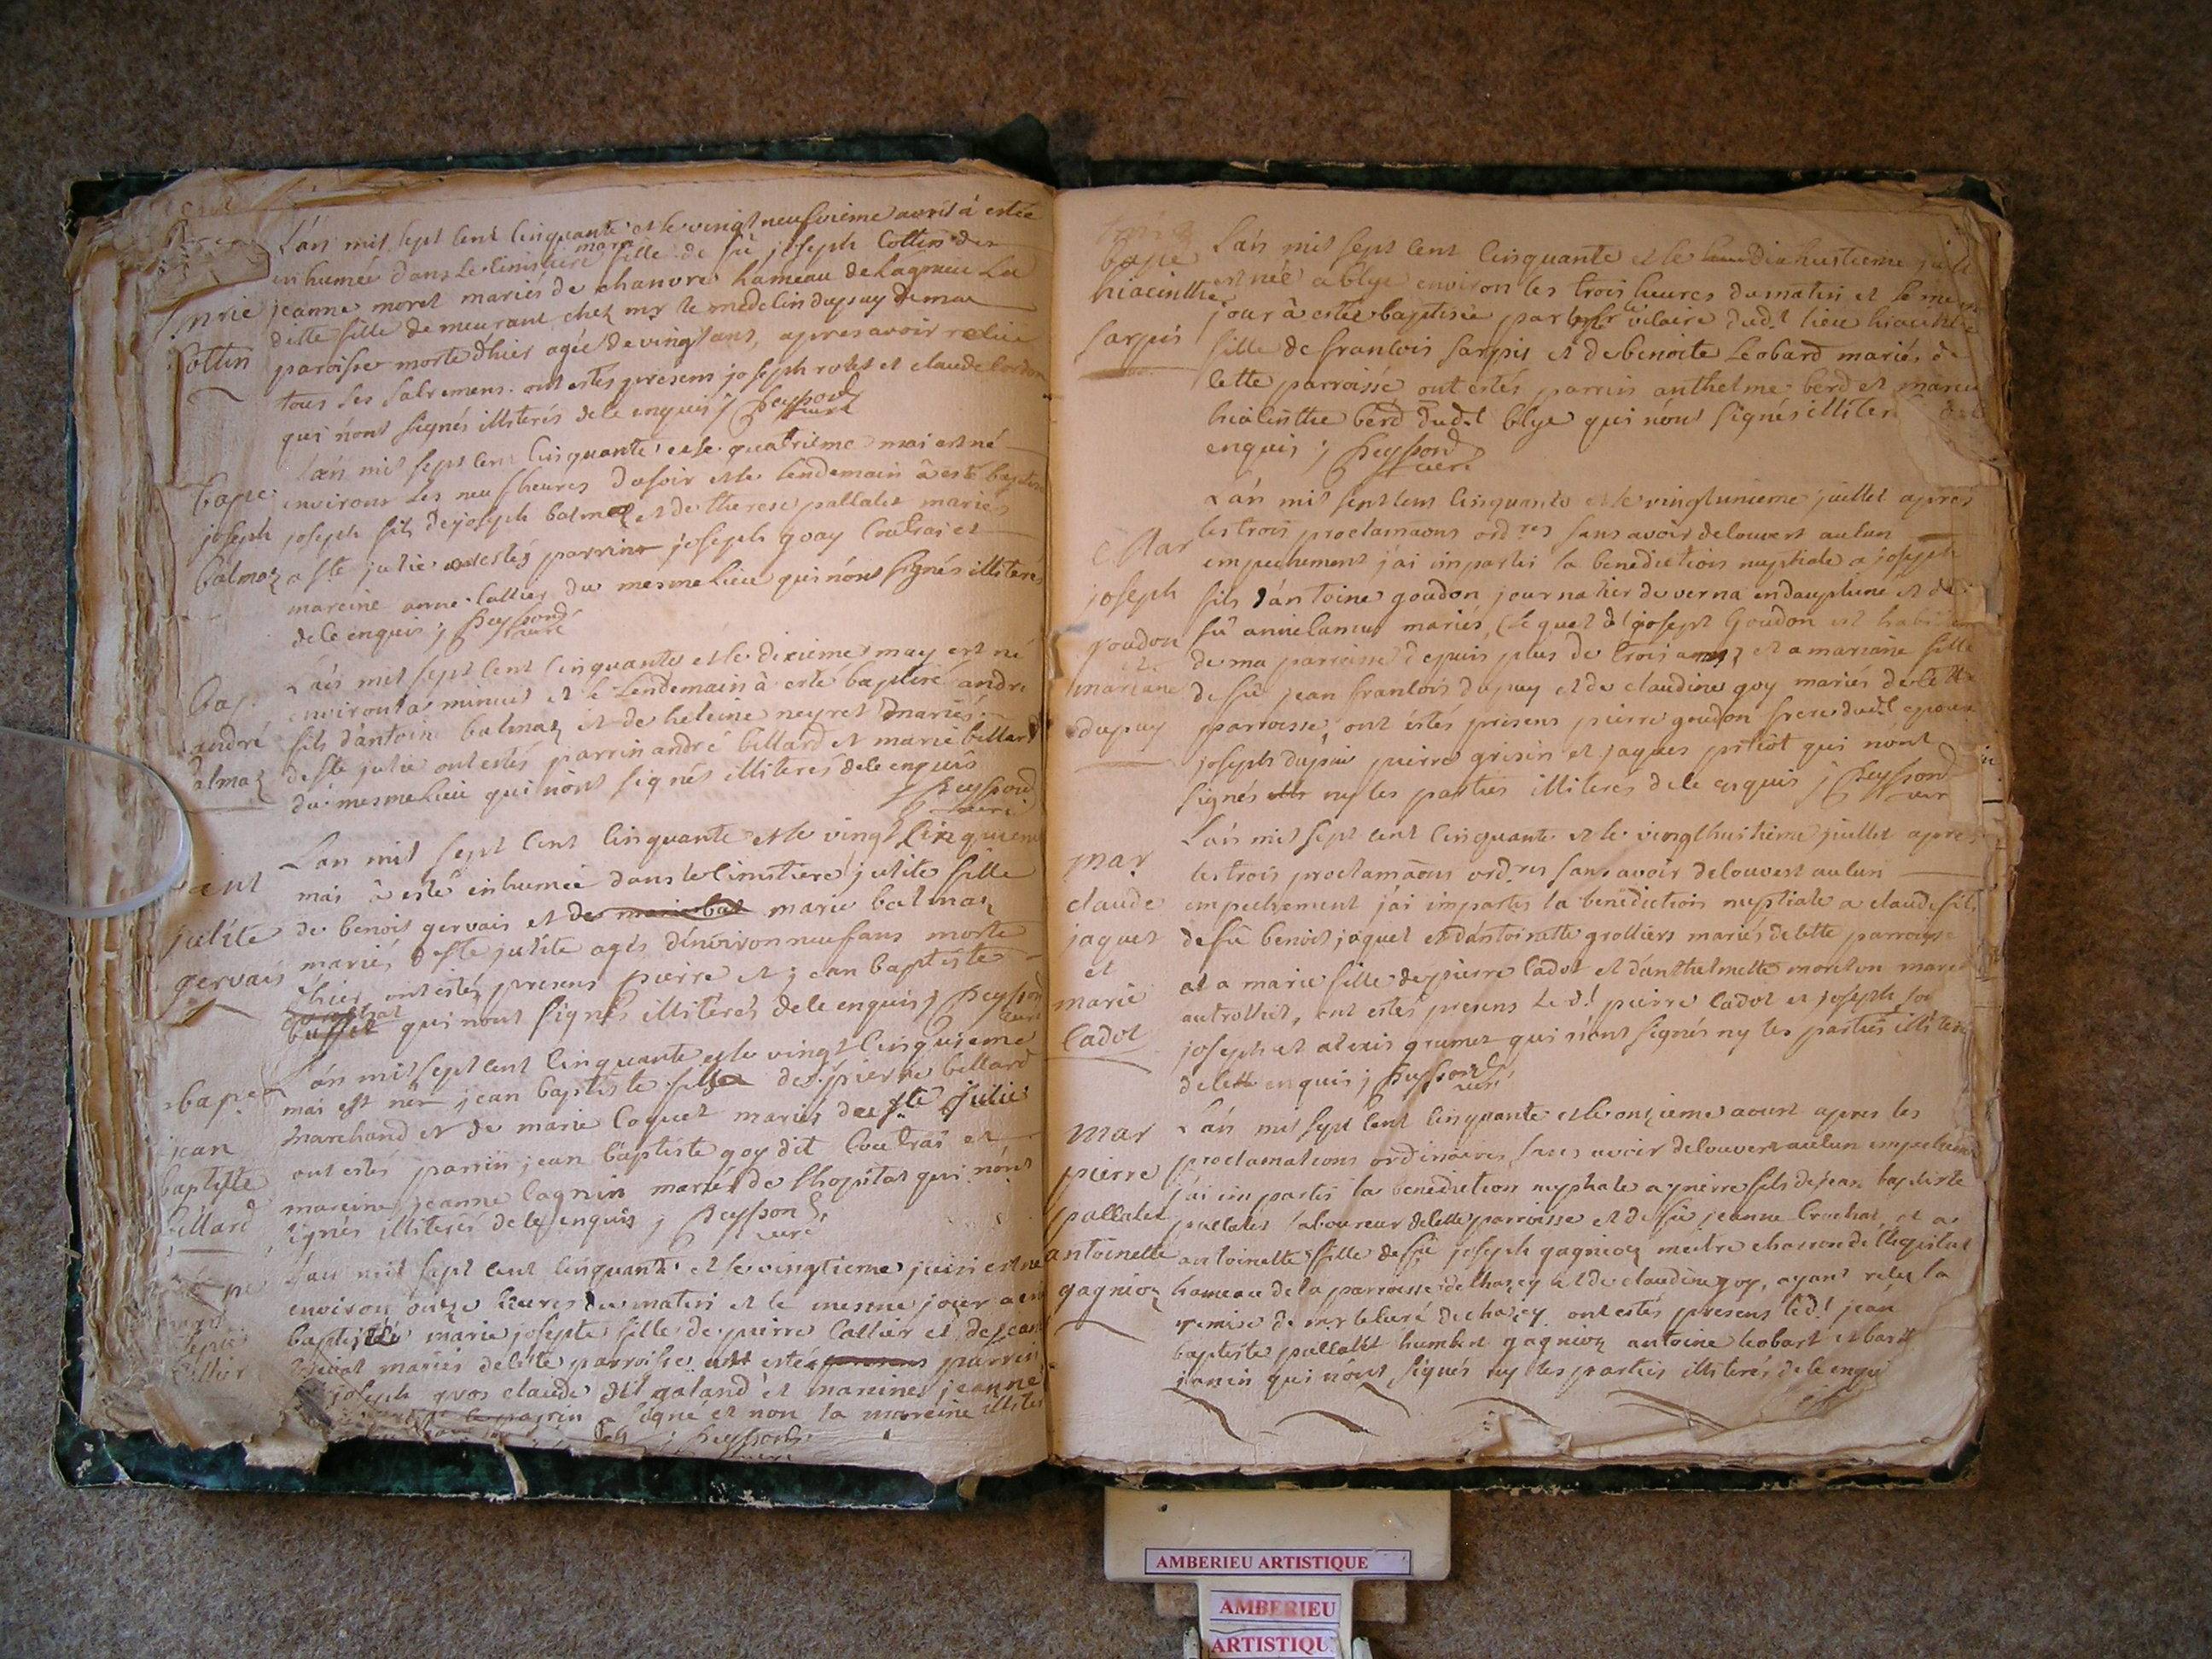 L'an mil sept cent cinquante et le vingt neufvieme avril à estée
inhumée dans le cimistiere marie fille de fû joseph Cottin de
jeanne moret mariés de chanvre hameau de Lagnieu La
marie
ditte fille demeurant chez mr le medelin dupuy de ma
Cottin
paroisse morte d'hier agée de vingt ans, apres avoir recue
tous ses sacremens. ont estés presens joseph rolet et claude
qui n'ont signés illiterés de ce enquis j peyssond
curé
L'an mil sept cent cinquante et le quatrieme mai est né
bapt
environt les neuf heures du soir et le lendemain à esté baptisé
joseph
joseph fils de joseph balmaz et de therese pallalet mariés
balmaz
a ste julie ont estés parrint joseph goay Coutrai et
mareine anne Callier du mesme lieu qui n'ont signés illiterés
de ce enquis j peyssond
curé
L'an mil sept cent cinquante et le dixieme may est né
bap.
environt a minuit et le Lendemain à esté baptisé andré
andré
fils d'antoine balmaz et de heleine neyret mariés
balmaz
de ste julie ont estés parrin andré billard et marie billard
du mesme Lieu qui n'ont signés illiterés de ce enquis
j peyssond
curé
L'an mil sept cent cinquante et le vingt cinquieme
mai à esté inhumée dans le cimistiere julite fille
julite
de benoit gervais et de marie bal marie balmaz
gervais
mariés de ste julite agés d'environ neuf ans morte
d'hier ont estés presens pierre et jean baptiste
buffet qui nont signés illiterés de ce enquis j peyssond
curé
L'an mil sept cent cinquante et le vingt cinquieme
bap
mai est né jean baptiste fils de pierre billard
jean
marchand et de marie Coquet mariés de ste julie
baptiste
ont estés parrin jean baptiste goy dit Coutrai et
billard
mareine jeanne Cagnin mariés de Lhopital qui n'ont
signés illiterés de ce enquis j peyssond
curé
L'an mil sept cent cinquante et le vingtieme juin est né
environ onze heures du matin et le mesme jour a été
baptisée marie josepte fille de pierre Callier et de jeanne
mariés de cette parroisse ont estés presens parrein
joseph guos claude dit galand et mareines jeanne
le parrin signé et non la mareine illiterés
j peyssond
curé
bapt
L'an mil sept cent cinquante et le dixhuitieme juillet
hiacinthe
est née a blye environ les trois heures du matin et le mesme
jour à estée baptisée par mr le vicaire dud.t lieu hiacinthe
sarpis
fille de francois sarpis et de benoite Leobard mariés de
cette parroisse ont estés parrin anthelme berd et marie
hiacinthe berd dud.t blye qui n'ont signés illiterés de ce
enquis j peyssond
curé
L'an mil sept cent cinquante et le vingtunieme juillet apres
mar
les trois proclamaons ord.res sans avoir decouvert aucun
empechement j'ai imparti la benedictiois nuptiale a joseph
joseph
fils d'antoine goudon journalier de verna en dauphine et de
goudon
fû anne Camus mariés, (le quel d.t joseph Goudon est habitant
et
de ma parroisse depuis plus de trois ans) et a mariane fille
mariane
de fû jean francois dupuy et de claudine goy mariés de cette
dupuy
parroisse, ont estés presens pierre goudon frere dud.t epoux
joseph dupuis pierre grisin et jaques pitiot qui n'ont
signés ny les parties illiteres de ce enquis j peyssond
curé
L'an mil sept cent cinquante et le vingthuitieme juillet apres
mar
les trois proclamaons ord.res sans avoir decouvert aucun
claude
empechement j'ai imparti la benedictiois nuptiale a claude fils
jaquet
de fû benoit jaquet et d'antoinette grolliers mariés de cette parroisse
et
et a marie fille de pierre Cadot et d'anthelmette moreton mariés
marie
autrefois, ont estés presens Le d.t pierre Cadot et joseph
Cadot
joseph et alexis grumet qui n'ont signés ny les parties illiterés
de ce enquis j peyssond
curé
mar
L'an mil sept cent cinquante et le onzieme aoust apres les
pierre
proclamations ordinaires sans avoir decouvert aucun empechement
j'ai imparti la benediction nuptiale a pierre fils de jean baptiste
pallalet
pallalet laboureur de cette parroisse et de fû jeanne Crochat, et a
antoinette
antoinette fille de fû joseph gagnioz meitre charron de Lhopital
gagnioz
hameau de la parroisse de chazey et de claudine goy, ayant reçu la
remise de mr le curé de chazey ont estés presens led.t jean
baptiste pallalet humbert gagnioz antoine leobart et
janin qui n'ont signés ny les parties illiterés de ce enquis
AMBERIEU ARTISTIQUE
AMBERIEU
ARTISTIQU